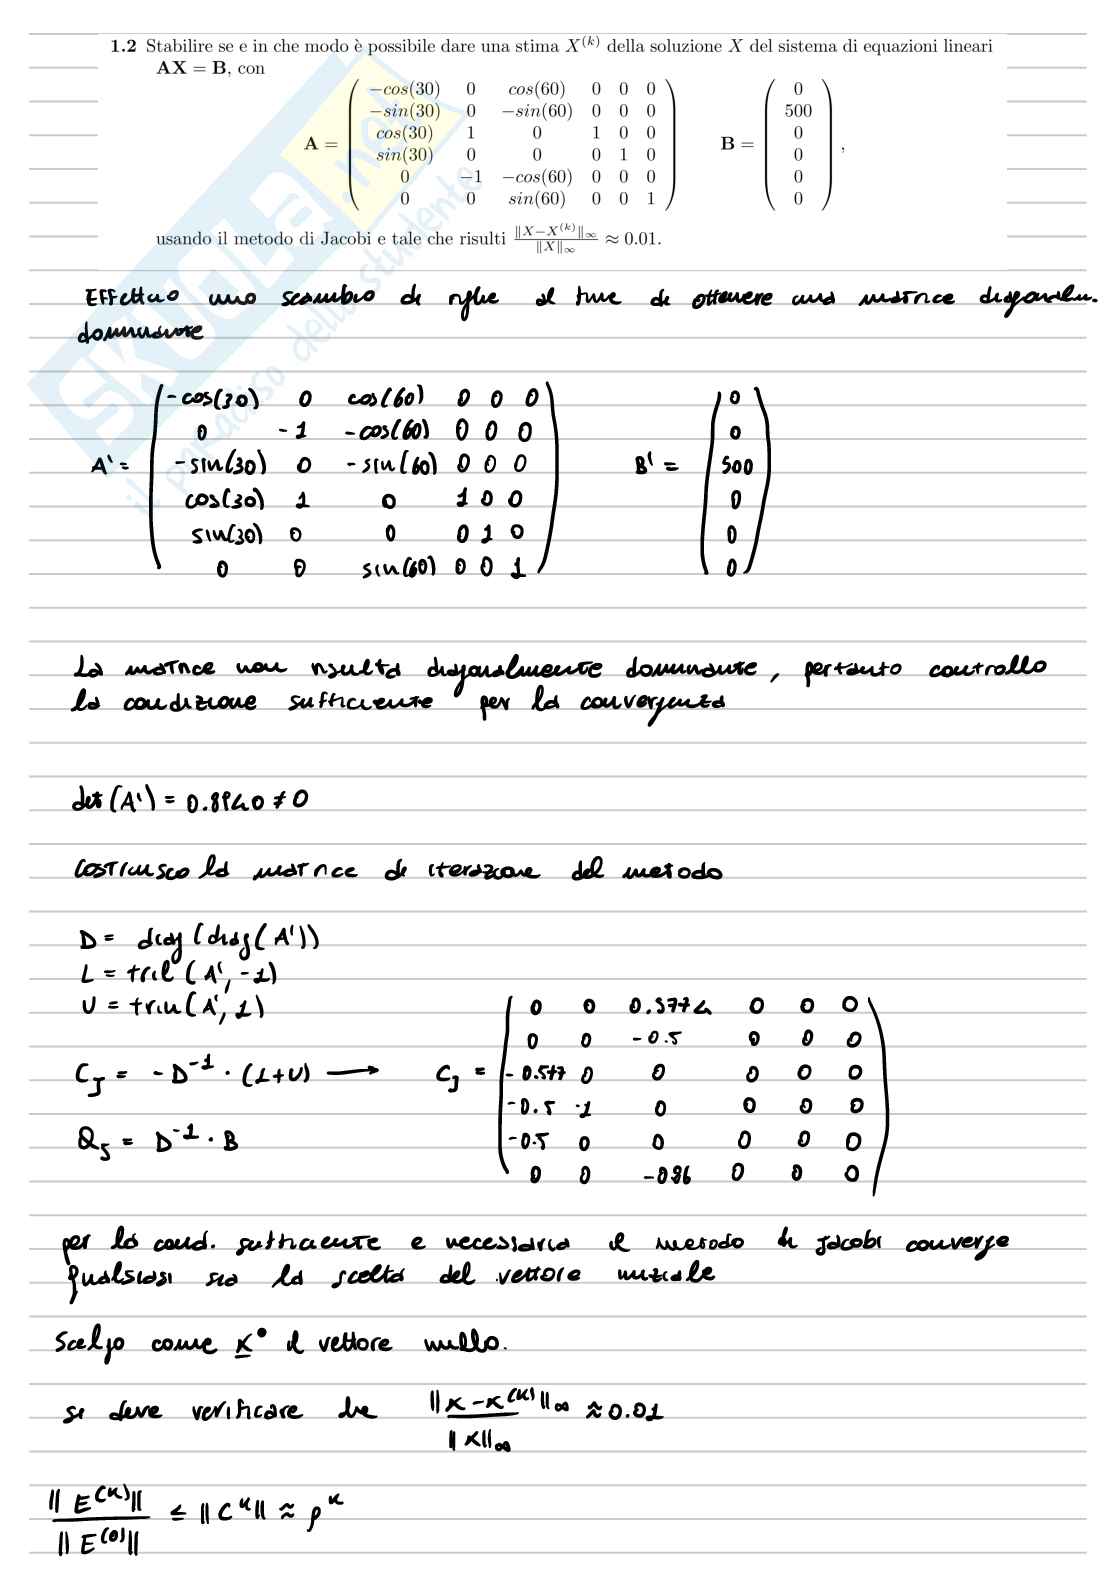 1.2 Stabilire se e in che modo è possibile dare una stima X^(k) della soluzione X del sistema di equazioni lineari
AX = B, con
A = ( −cos(30) 0 cos(60) 0 0 0
−sin(30) 0 −sin(60) 0 0 0
cos(30) 1 0 1 0 0
sin(30) 0 0 0 1 0
0 −1 −cos(60) 0 0 0
0 0 sin(60) 0 0 1 )
B = ( 0
500
0
0
0
0 ) ,
usando il metodo di Jacobi e tale che risulti ‖X−X^(k)‖∞ / ‖X‖∞ ≈ 0.01.
Effettuo uno scambio di righe al fine di ottenere una matrice diagonalm.
dominante
A' = ( -cos(30) 0 cos(60) 0 0 0
0 -1 -cos(60) 0 0 0
-sin(30) 0 -sin(60) 0 0 0
cos(30) 1 0 1 0 0
sin(30) 0 0 0 1 0
0 0 sin(60) 0 0 1 )
B' = ( 0
0
500
0
0
0 )
La matrice non risulta diagonalmente dominante, pertanto controllo
la condizione sufficiente per la convergenza
det(A') = ≠ 0
Costruisco la matrice di iterazione del metodo
D = diag(diag(A'))
L = tril(A', -1)
U = triu(A', 1)
C_J = -D^-1 · (L+U) →
C_J = ( 0 0 0.5774 0 0 0
0 0 -0.5 0 0 0
-0.577 0 0 0 0 0
-0.5 -1 0 0 0 0
-0.5 0 0 0 0 0
0 0 -0.86 0 0 0 )
Q_J = D^-1 · B
per la cond. sufficiente e necessaria il metodo di Jacobi converge
qualsiasi sia la scelta del vettore iniziale
Scelgo come x° il vettore nullo.
si deve verificare che ‖x - x^(k)‖∞ / ‖x‖∞ ≈ 0.01
‖E^(k)‖ / ‖E^(0)‖ ≤ ‖C^k‖ ≈ ρ^k
SKUOLA.net
il paradiso dello studente